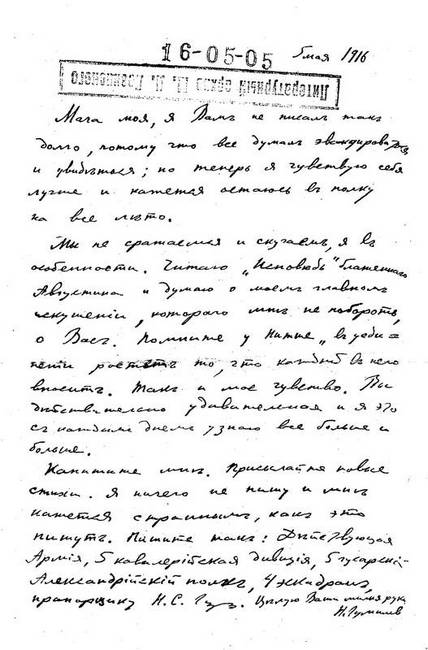 16-05-05
5 мая 1916
Литературный архив П. Л. Вакселя
Мага моя, я Вамъ не писалъ такъ
долго, потому что все думалъ эвакуироваться
и увидѣться; но теперь я чувствую себя
лучше и кажется остаюсь въ полку
на все лѣто.
Мы не сражаемся и скучаемъ, я въ
особенности. Читаю „Исповѣдь" блаженнаго
Августина и думаю о моемъ главномъ
искушеніи, котораго мнѣ не побороть,
о Васъ. Помните у Нитше „въ уеди-
неніи растетъ то, что каждый въ него
вноситъ. Такъ и мое чувство. Вы
дѣйствительно удивительная и я это
съ каждымъ днемъ узнаю все больше и
больше.
Напишите мнѣ. Присылайте новые
стихи. Я ничего не пишу и мнѣ
кажется страннымъ, какъ это
пишутъ. Пишите такъ: Дѣйствующая
Армія, 5 кавалерійская дивизія, 5 гусарскій
Александрійскій полкъ, 4 эскадронъ,
прапорщику Н. С. Гум. Цѣлую Ваши милыя руки
Н. Гумилев